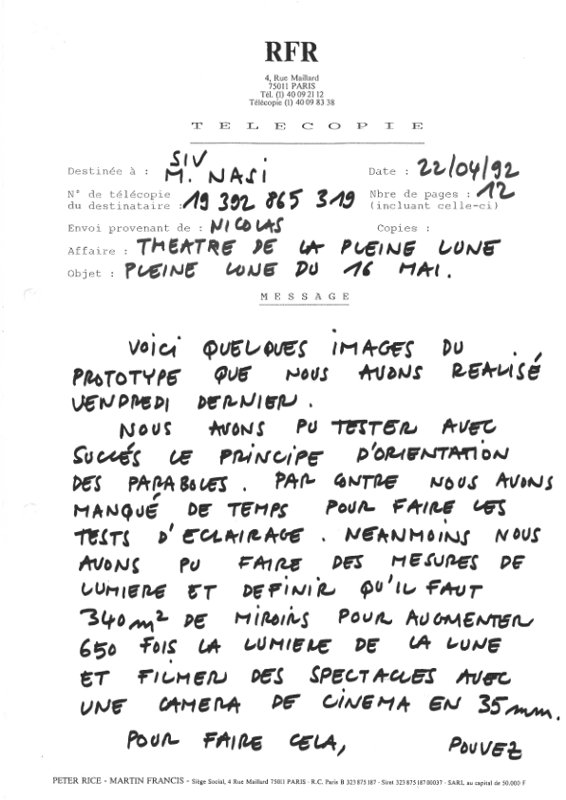 RFR
4, Rue Maillard
75011 PARIS
Tél. (1) 40 09 21 12
Télécopie (1) 40 09 83 38
TELECOPIE
Destinée à : SIV
M. NASI
Date : 22/04/92
N° de télécopie
du destinataire : 19 392 865 319
Nbre de pages : 12
(incluant celle-ci)
Envoi provenant de : NICOLAS
Copies :
Affaire : THEATRE DE LA PLEINE LUNE
Objet : PLEINE LUNE DU 16 MAI.
MESSAGE
VOICI QUELQUES IMAGES DU
PROTOTYPE QUE NOUS AVONS REALISÉ
VENDREDI DERNIER.
NOUS AVONS PU TESTER AVEC
SUCCÉS LE PRINCIPE D'ORIENTATION
DES PARABOLES. PAR CONTRE NOUS AVONS
MANQUÉ DE TEMPS POUR FAIRE LES
TESTS D'ECLAIRAGE. NEANMOINS NOUS
AVONS PU FAIRE DES MESURES DE
LUMIERE ET DEFINIR QU'IL FAUT
340 m² DE MIROIRS POUR AUGMENTER
650 FOIS LA LUMIERE DE LA LUNE
ET FILMER DES SPECTACLES AVEC
UNE CAMERA DE CINEMA EN 35 mm.
POUR FAIRE CELA, POUVEZ
PETER RICE - MARTIN FRANCIS - Siège Social, 4 Rue Maillard 75011 PARIS - R.C. Paris B 323 875 187 - Siret 323 875 187 00037 - SARL au capital de 50.000 F